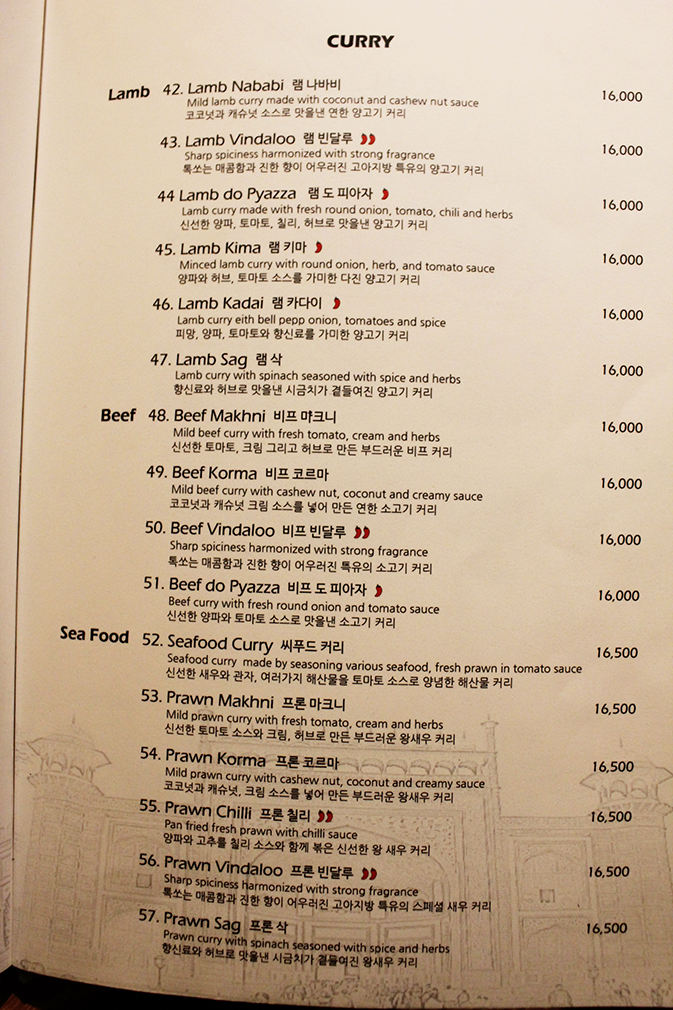 CURRY
Lamb 42. Lamb Nababi 램 나바비 16,000
Mild lamb curry made with coconut and cashew nut sauce
코코넛과 캐슈넛 소스로 맛을낸 연한 양고기 커리
43. Lamb Vindaloo 램 빈달루 16,000
Sharp spiciness harmonized with strong fragrance
톡쏘는 매콤함과 진한 향이 어우러진 고아지방 특유의 양고기 커리
44 Lamb do Pyazza 램 도 피아자 16,000
Lamb curry made with fresh round onion, tomato, chili and herbs
신선한 양파, 토마토, 칠리, 허브로 맛을낸 양고기 커리
45. Lamb Kima 램 키마 16,000
Minced lamb curry with round onion, herb, and tomato sauce
양파와 허브, 토마토 소스를 가미한 다진 양고기 커리
46. Lamb Kadai 램 카다이 16,000
Lamb curry eith bell pepp onion, tomatoes and spice
피망, 양파, 토마토와 향신료를 가미한 양고기 커리
47. Lamb Sag 램 삭 16,000
Lamb curry with spinach seasoned with spice and herbs
향신료와 허브로 맛을낸 시금치가 곁들여진 양고기 커리
Beef 48. Beef Makhni 비프 먀크니 16,000
Mild beef curry with fresh tomato, cream and herbs
신선한 토마토, 크림 그리고 허브로 만든 부드러운 비프 커리
49. Beef Korma 비프 코르마 16,000
Mild beef curry with cashew nut, coconut and creamy sauce
코코넛과 캐슈넛 크림 소스를 넣어 만든 연한 소고기 커리
50. Beef Vindaloo 비프 빈달루 16,000
Sharp spiciness harmonized with strong fragrance
톡쏘는 매콤함과 진한 향이 어우러진 특유의 소고기 커리
51. Beef do Pyazza 비프 도 피아자 16,000
Beef curry with fresh round onion and tomato sauce
신선한 양파와 토마토 소스로 맛을낸 소고기 커리
Sea Food 52. Seafood Curry 씨푸드 커리 16,500
Seafood curry made by seasoning various seafood, fresh prawn in tomato sauce
신선한 새우와 관자, 여러가지 해산물을 토마토 소스로 양념한 해산물 커리
53. Prawn Makhni 프론 마크니 16,500
Mild prawn curry with fresh tomato, cream and herbs
신선한 토마토 소스와 크림, 허브로 만든 부드러운 왕새우 커리
54. Prawn Korma 프론 코르마 16,500
Mild prawn curry with cashew nut, coconut and creamy sauce
코코넛과 캐슈넛, 크림 소스를 넣어 만든 부드러운 왕새우 커리
55. Prawn Chilli 프론 칠리 16,500
Pan fried fresh prawn with chilli sauce
양파와 고추를 칠리 소스와 함께 볶은 신선한 왕 새우 커리
56. Prawn Vindaloo 프론 빈달루 16,500
Sharp spiciness harmonized with strong fragrance
톡쏘는 매콤함과 진한 향이 어우러진 고아지방 특유의 스페셜 새우 커리
57. Prawn Sag 프론 삭 16,500
Prawn curry with spinach seasoned with spice and herbs
향신료와 허브로 맛을낸 시금치가 곁들여진 왕새우 커리